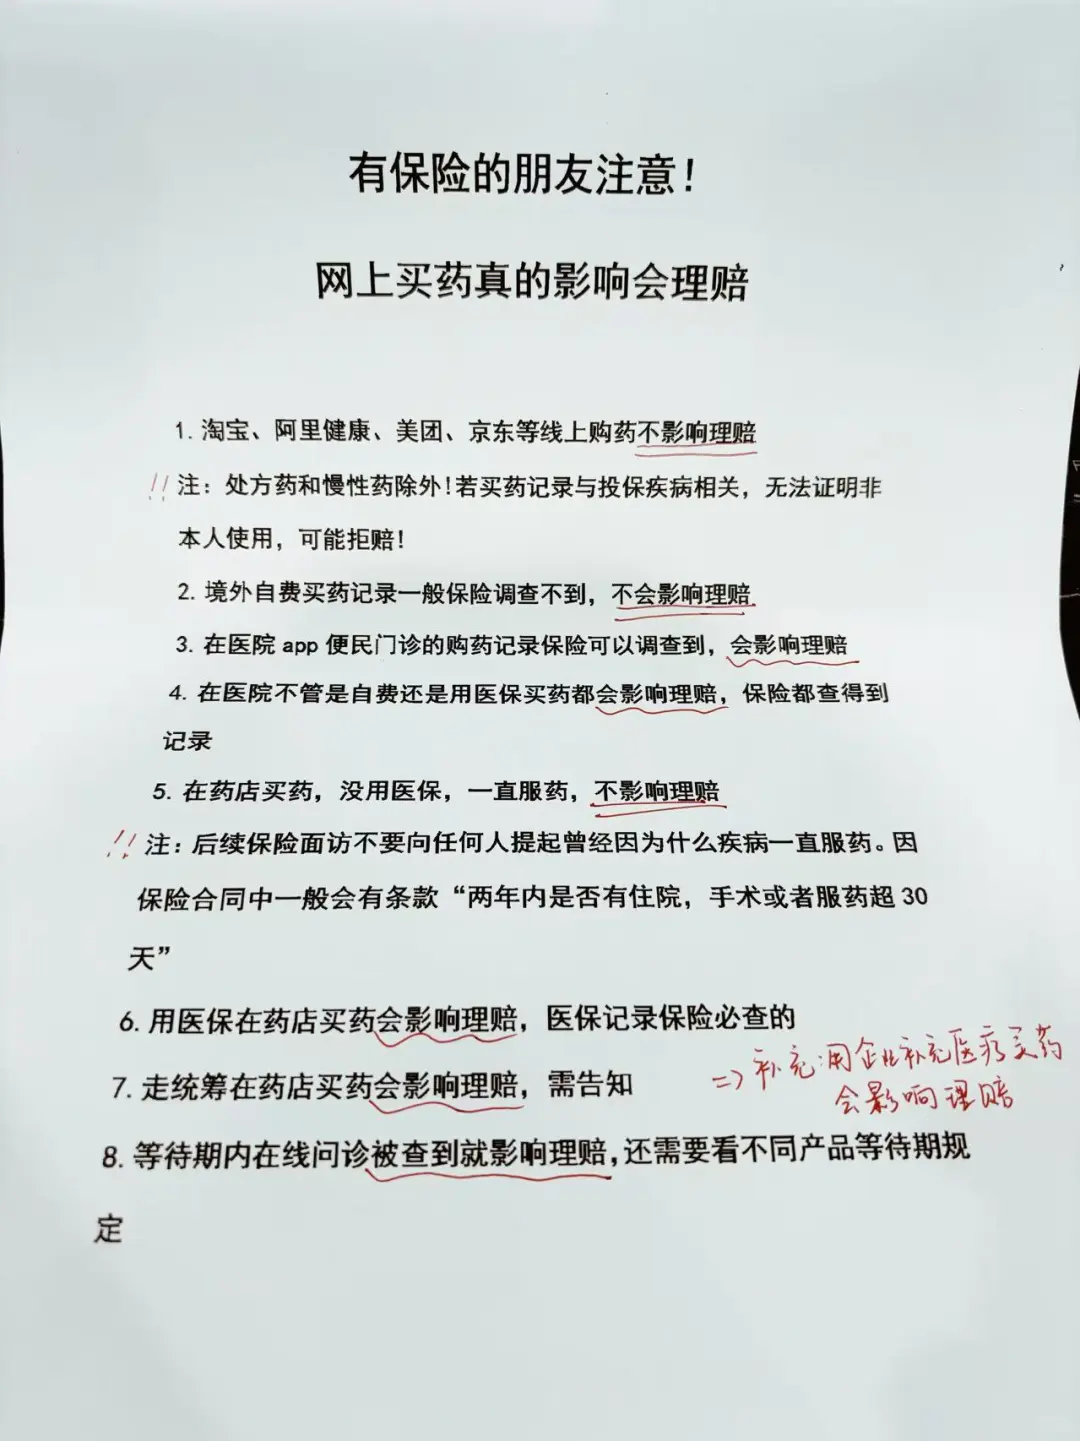 有保险的朋友注意！
网上买药真的影响会理赔
1. 淘宝、阿里健康、美团、京东等线上购药不影响理赔
!! 注：处方药和慢性药除外！若买药记录与投保疾病相关，无法证明非
本人使用，可能拒赔！
2. 境外自费买药记录一般保险调查不到，不会影响理赔
3. 在医院 app 便民门诊的购药记录保险可以调查到，会影响理赔
4. 在医院不管是自费还是用医保买药都会影响理赔，保险都查得到
记录
5. 在药店买药，没用医保，一直服药，不影响理赔
!! 注：后续保险面访不要向任何人提起曾经因为什么疾病一直服药。因
保险合同中一般会有条款“两年内是否有住院，手术或者服药超 30
天”
6. 用医保在药店买药会影响理赔，医保记录保险必查的
7. 走统筹在药店买药会影响理赔，需告知
=> 补充：用企业补充医疗买药
会影响理赔
8. 等待期内在线问诊被查到就影响理赔，还需要看不同产品等待期规
定